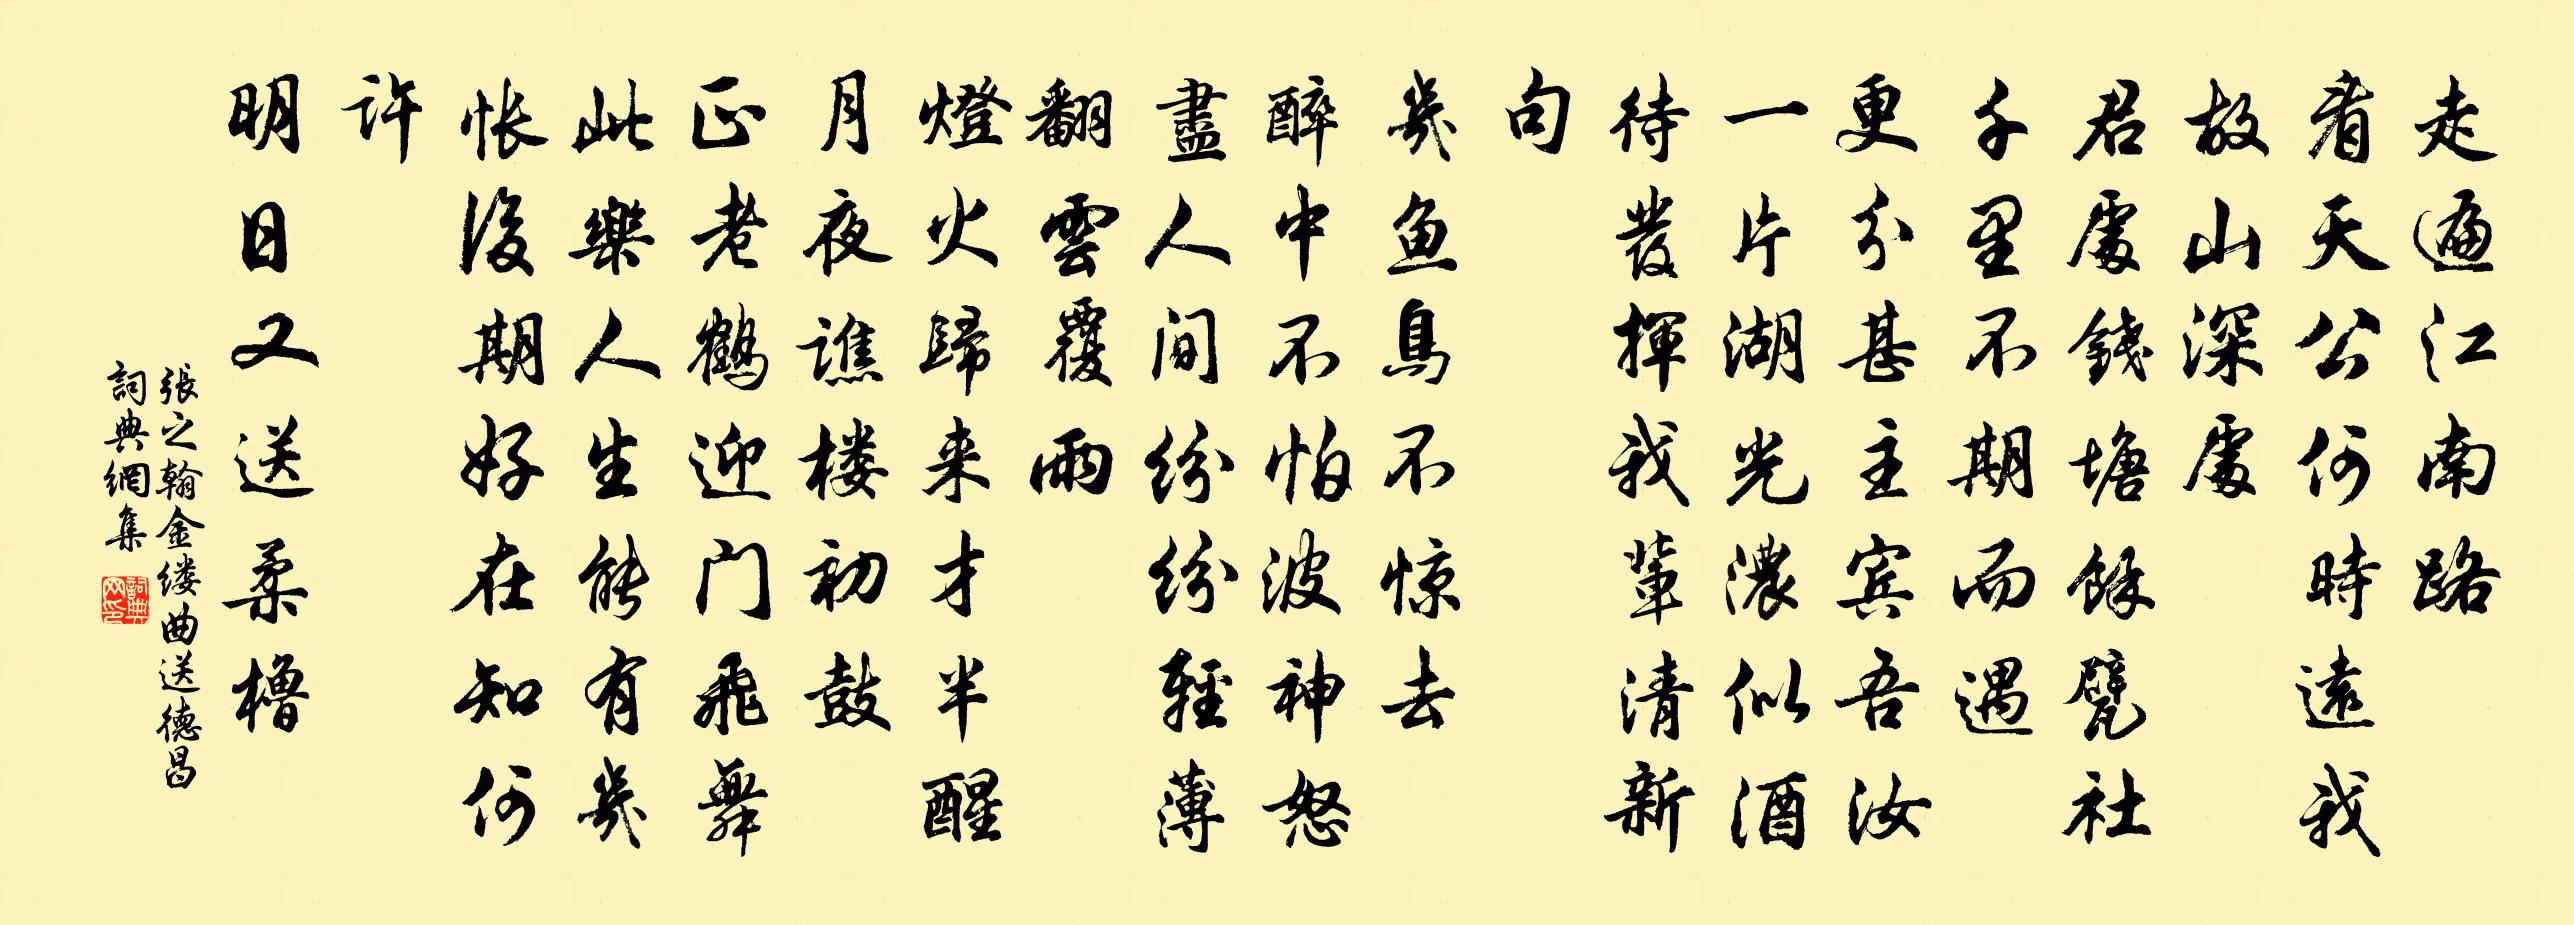 走遍江南路
看天公何時遠我
故山深處
君處錢塘餘甓社
千里不期而遇
更分甚主賓吾汝
一片湖光濃似酒
待發揮我輩清新
句
幾魚鳥不惊去
醉中不怕波神怒
盡人间紛紛輕薄
翻雲覆雨
燈火歸来才半醒
月夜譙楼初鼓
正老鶴迎门飛舞
此樂人生能有幾
悵後期好在知何
許
明日又送柔櫓
張之翰金缕曲送德昌
詞典網集
詞典网印